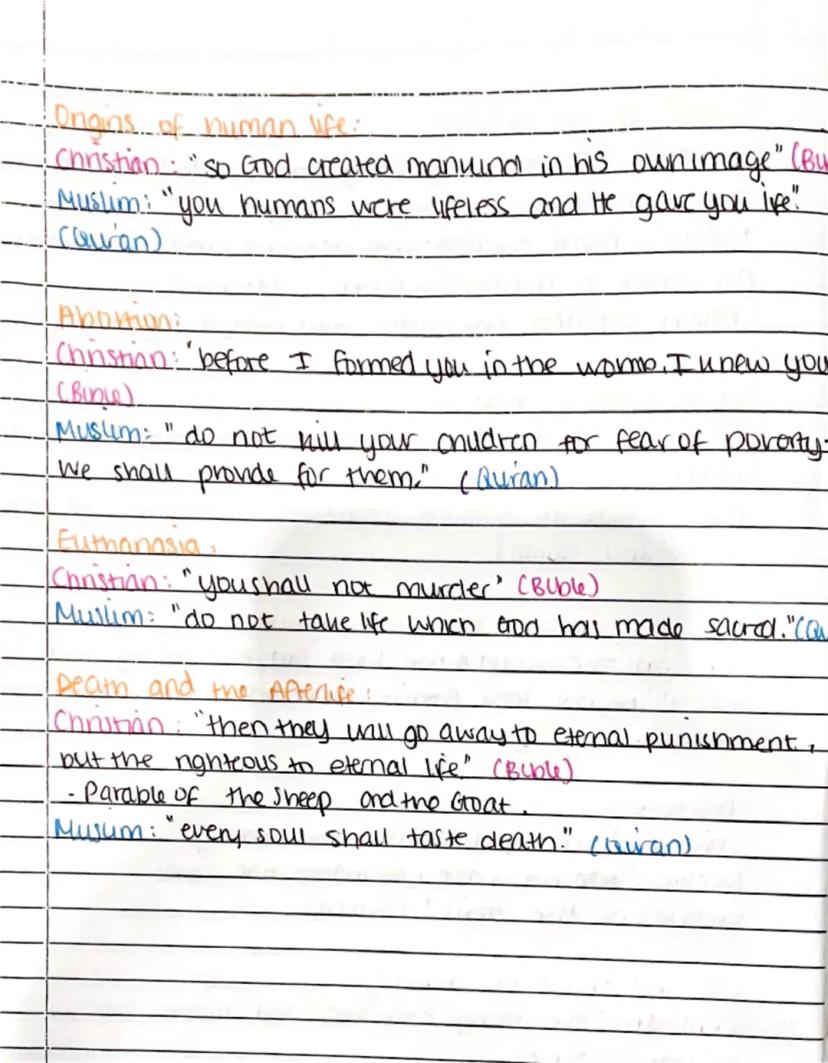 Origins of human life:
Christian: "so God created mankind in his own image" (Bu
Muslim: "you humans were lifeless and He gave you life".
(Quran)
Abortion:
Christian: "before I formed you in the womb, I knew you
(Bible)
Muslim: "do not kill your children for fear of poverty-
We shall provide for them." (Quran)
Euthanasia:
Christian: "you shall not murder" (Bible)
Muslim: "do not take life which God has made sacred." (Qu
Death and the Afterlife:
Christian: "then they will go away to eternal punishment,
but the righteous to eternal life" (Bible)
- Parable of the Sheep and the Goat.
Muslim: "every soul shall taste death." (Quran)